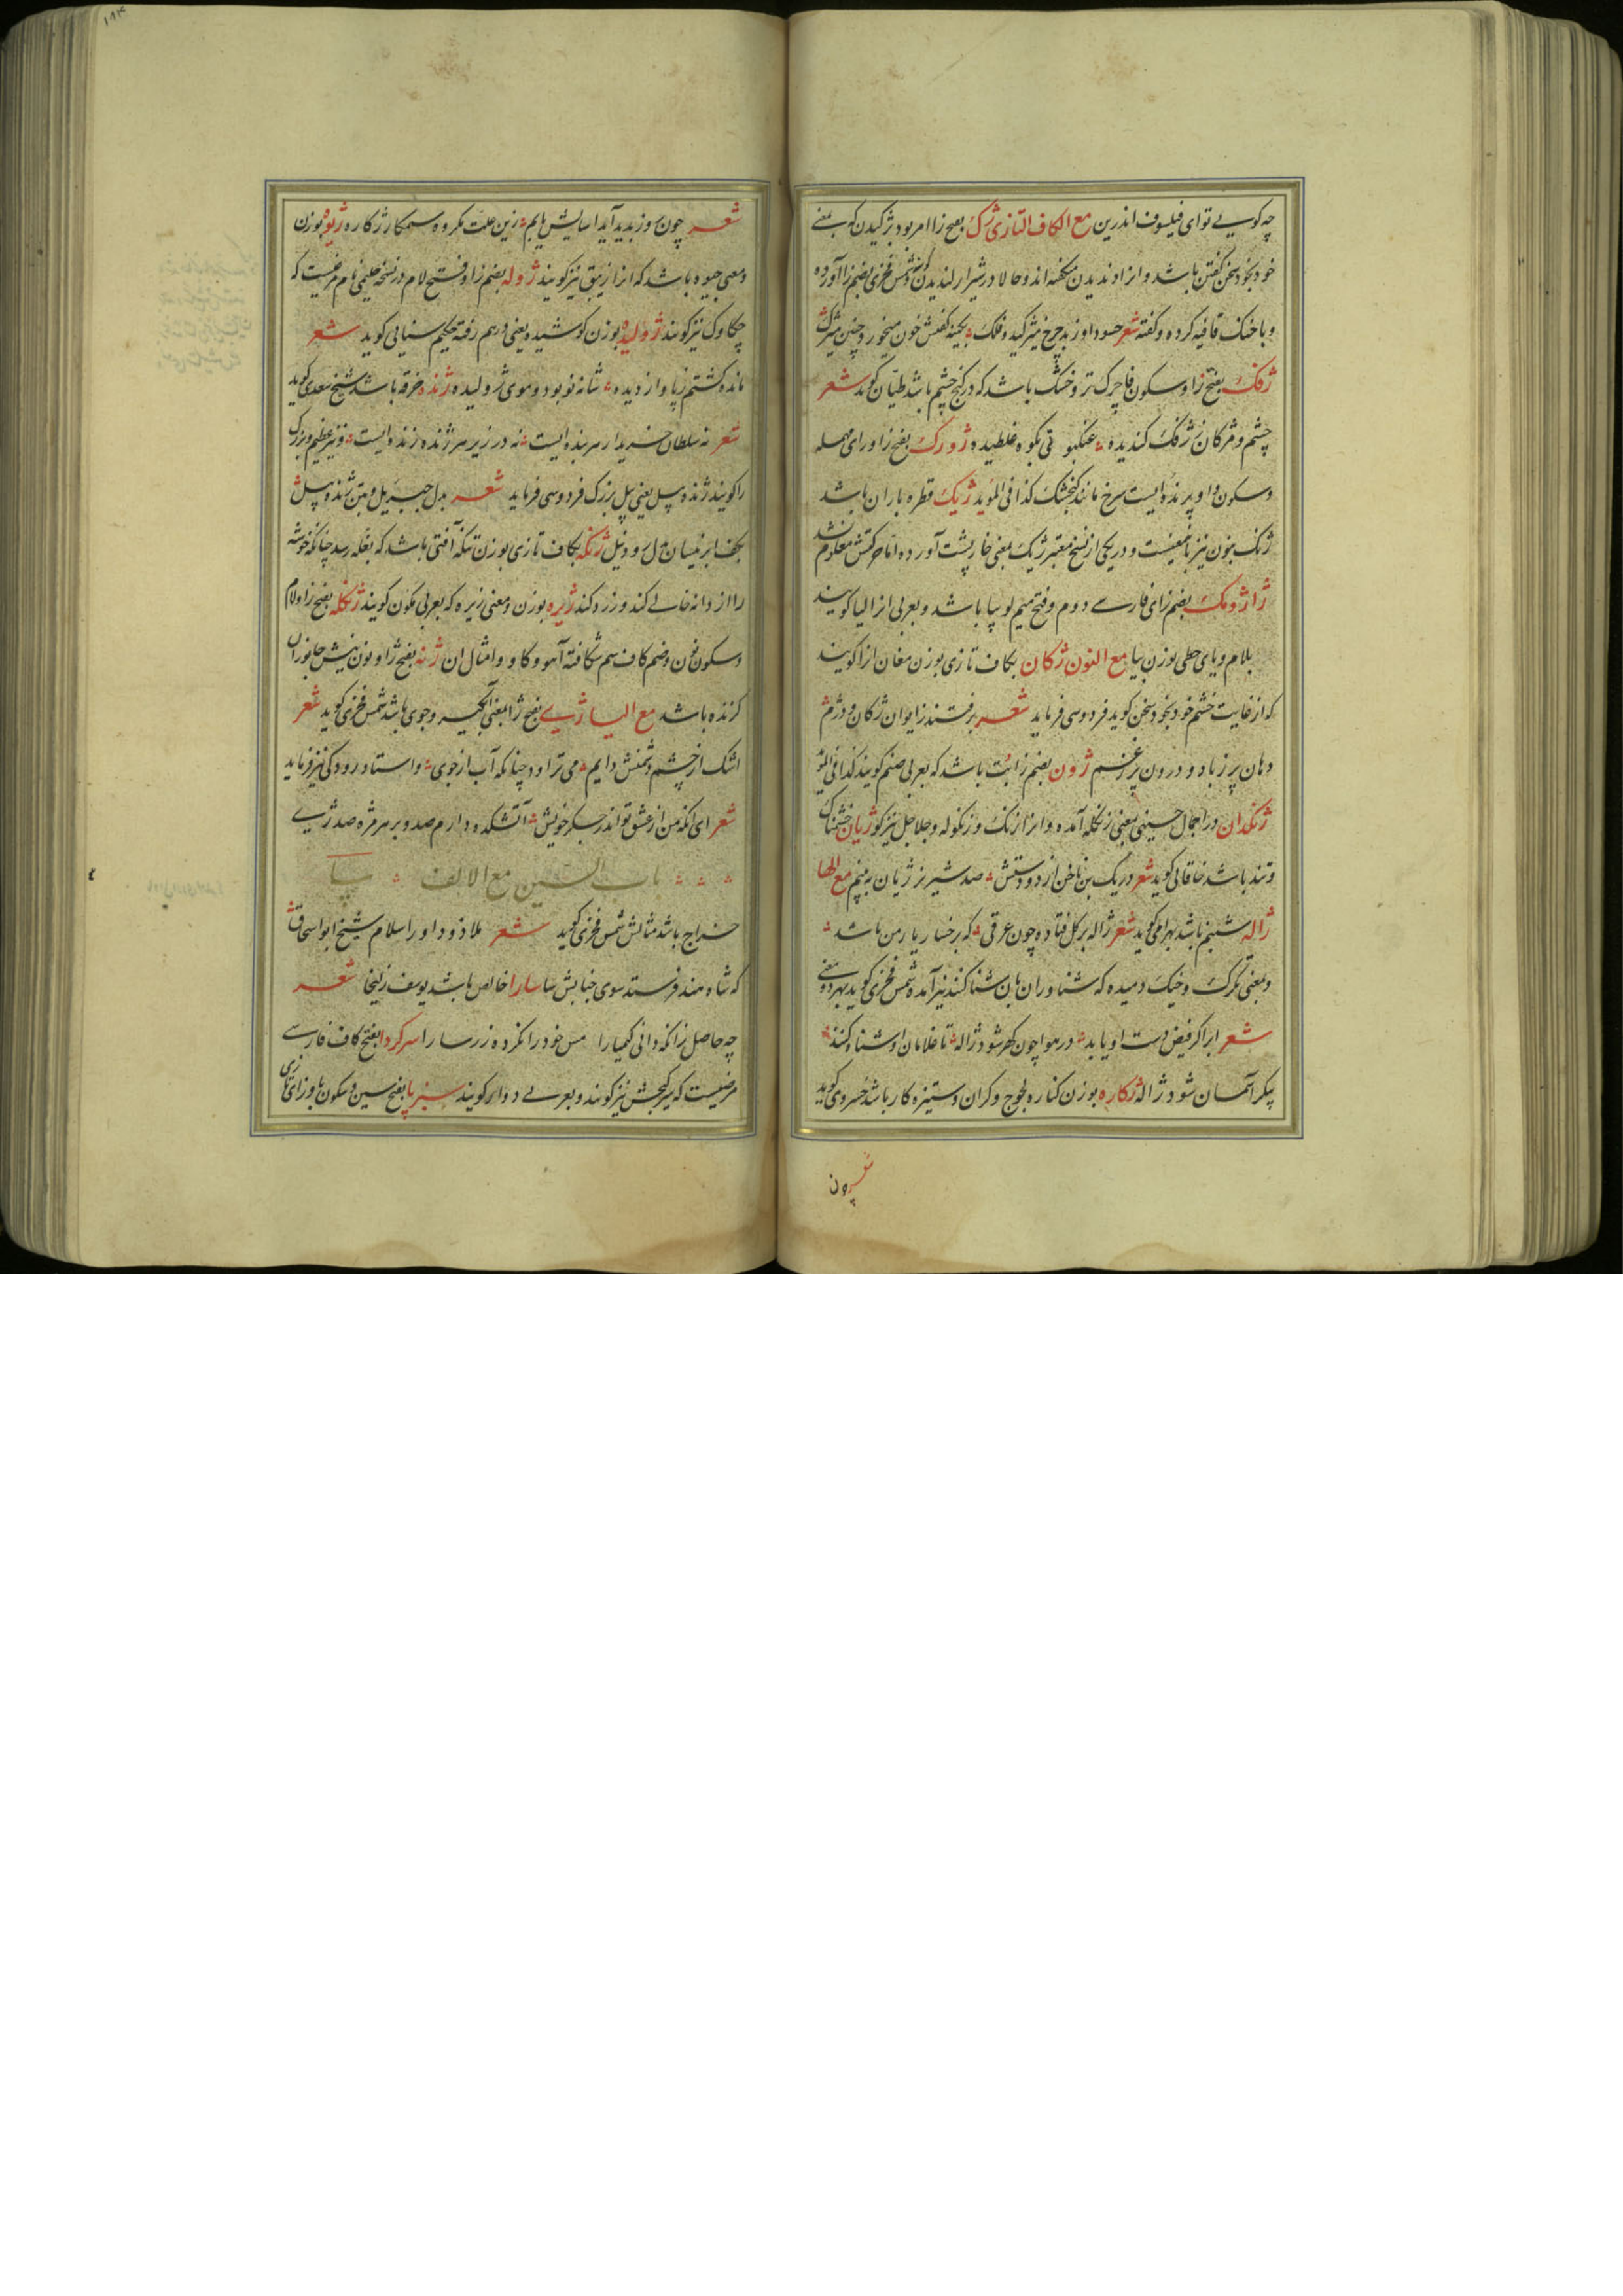 چه کویی تو ای فیلسوف اندرین مع الکاف التازی ژک بفتح زا امر بود بژکیدن که بمعنی
خود بخود سخن گفتن باشد و انرا وندیدن میکفته اند و حالا در شیراز لندیدن کویند و شمس فخری بضم زا آورده
و با خنک قافیه کرده و گفته شعر حسود او ز بد چرخ میژکید و فلک بکینه گفتش خون میخور و چنین میژک
ژفک بفتح زا و سکون فا چرک تر و خشک باشد که در کنج چشم باشد طیان کوید شعر
چشم و مژکان ژفک کندیده عنکبوتی بکوه غلطیده ژورک بفتح زا و رای مهمله
و سکون واو پرنده ایست سرخ مانند کنجشک کذا فی المؤید ژیک قطره باران باشد
ژنک بنون نیز بامعنیست و در یکی از نسخ معتبر ژیک بمعنی خارپشت آورده اما حرکتش معلوم نشد
ژاژومک بضم زای فارسی دوم و فتح میم لوبیا باشد و بعربی انرا لیا کویند
بلام و یای حطی بوزن بیا مع النون ژکان بکاف تازی بوزن مغان انرا کویند
که از غایت خشم خود بخود سخن کوید فردوسی فرماید شعر برفتند ز ایوان ژکان و دژم
دهان پر ز باد و درون پر ز غم ژون بضم زا بت باشد که بعربی صنم کویند کذا فی المؤید
ژنکدان در اجمال حسینی بمعنی زنکله آمده و انرا زنک و زنکوله و جلاجل نیز کویند ژیان خشمناک
و تند باشد خاقانی کوید شعر در یک بن ناخن از دو دستش صد شیر نر ژیان ببینم مع الها
ژاله شبنم باشد بهرامی کوید شعر ژاله بر کل فتاده چون عرقی که بر خسار یار من باشد
و بمعنی تکرک و خیک دمیده که شناوران بان شنا کنند نیز آمده شمس فخری کوید بهر دو معنی
شعر ابر اکر فیض دست او یابد در هوا چون کهر شود ژاله تا غلامان او شناه کنند
پیکر آسمان شود ژاله ژکاره بوزن کناره لجوج و کران و ستیزه کار باشد خسروی کوید
شعر چون
شعر چون سوز بدید آید اسایش یابم زین علت مکروه ستمکار ژکاره ژیوه بوزن
و معنی جیوه باشد که انرا زیبق نیز کویند ژوله بضم زا و فتح لام در نسخه حلیمی نام مرغیست که
چکاوک نیز کویند ژولیده بوزن کوشیده یعنی درهم رفته حکیم سنایی کوید شعر
مانده کشتم ز پا و از دیده شانه نو بود و موی ژولیده ژنده خرقه باشد شیخ سعدی کوید
شعر نه سلطان خریدار هر بنده ایست نه در زیر هر ژنده زنده ایست و نیز عظیم و بزرک
را کویند ژنده پیل یعنی پیل بزرک فردوسی فرماید شعر بدل جبرئیل و بتن ژنده پیل
بکف ابر نیسان بدل رود نیل ژنکه بکاف تازی بوزن تنکه آفتی باشد که بغله رسد چنانکه خوشه
را از دانه خالی کند و زرد کند ژیره بوزن و معنی زیره که بعربی کمون کویند ژنکله بفتح زا و لام
و سکون نون و ضم کاف سم شکافته آهو و کاو و امثال ان ژنه بفتح ژا و نون نیش جانوران
کزنده باشد مع الیا ژی بفتح ژا بمعنی آبکیر و جوی باشد شمس فخری کوید شعر
اشک از چشم دشمنش دایم می تراود چنانکه آب از جوی و استاد رودکی نیز فرماید
شعر ای انکه من از عشق تو اندر جکر خویش آتشکده دارم صد و بر هر مژه صد ژی
باب السین مع الالف سا
خراج باشد مثالش شمس فخری کوید شعر ملاذ و داور اسلام شیخ ابو اسحاق
که شاه هند فرستد سوی جنابش سا سارا خالص باشد یوسف زلیخا شعر
چه حاصل زانکه دانی کیمیا را مس خود را نکرده زر سارا سرکردا بفتح کاف فارسی
مرضیست که سرکیجش نیز کویند و بعربی دوار کویند سبزپا بفتح سین و سکون با و زای تازی